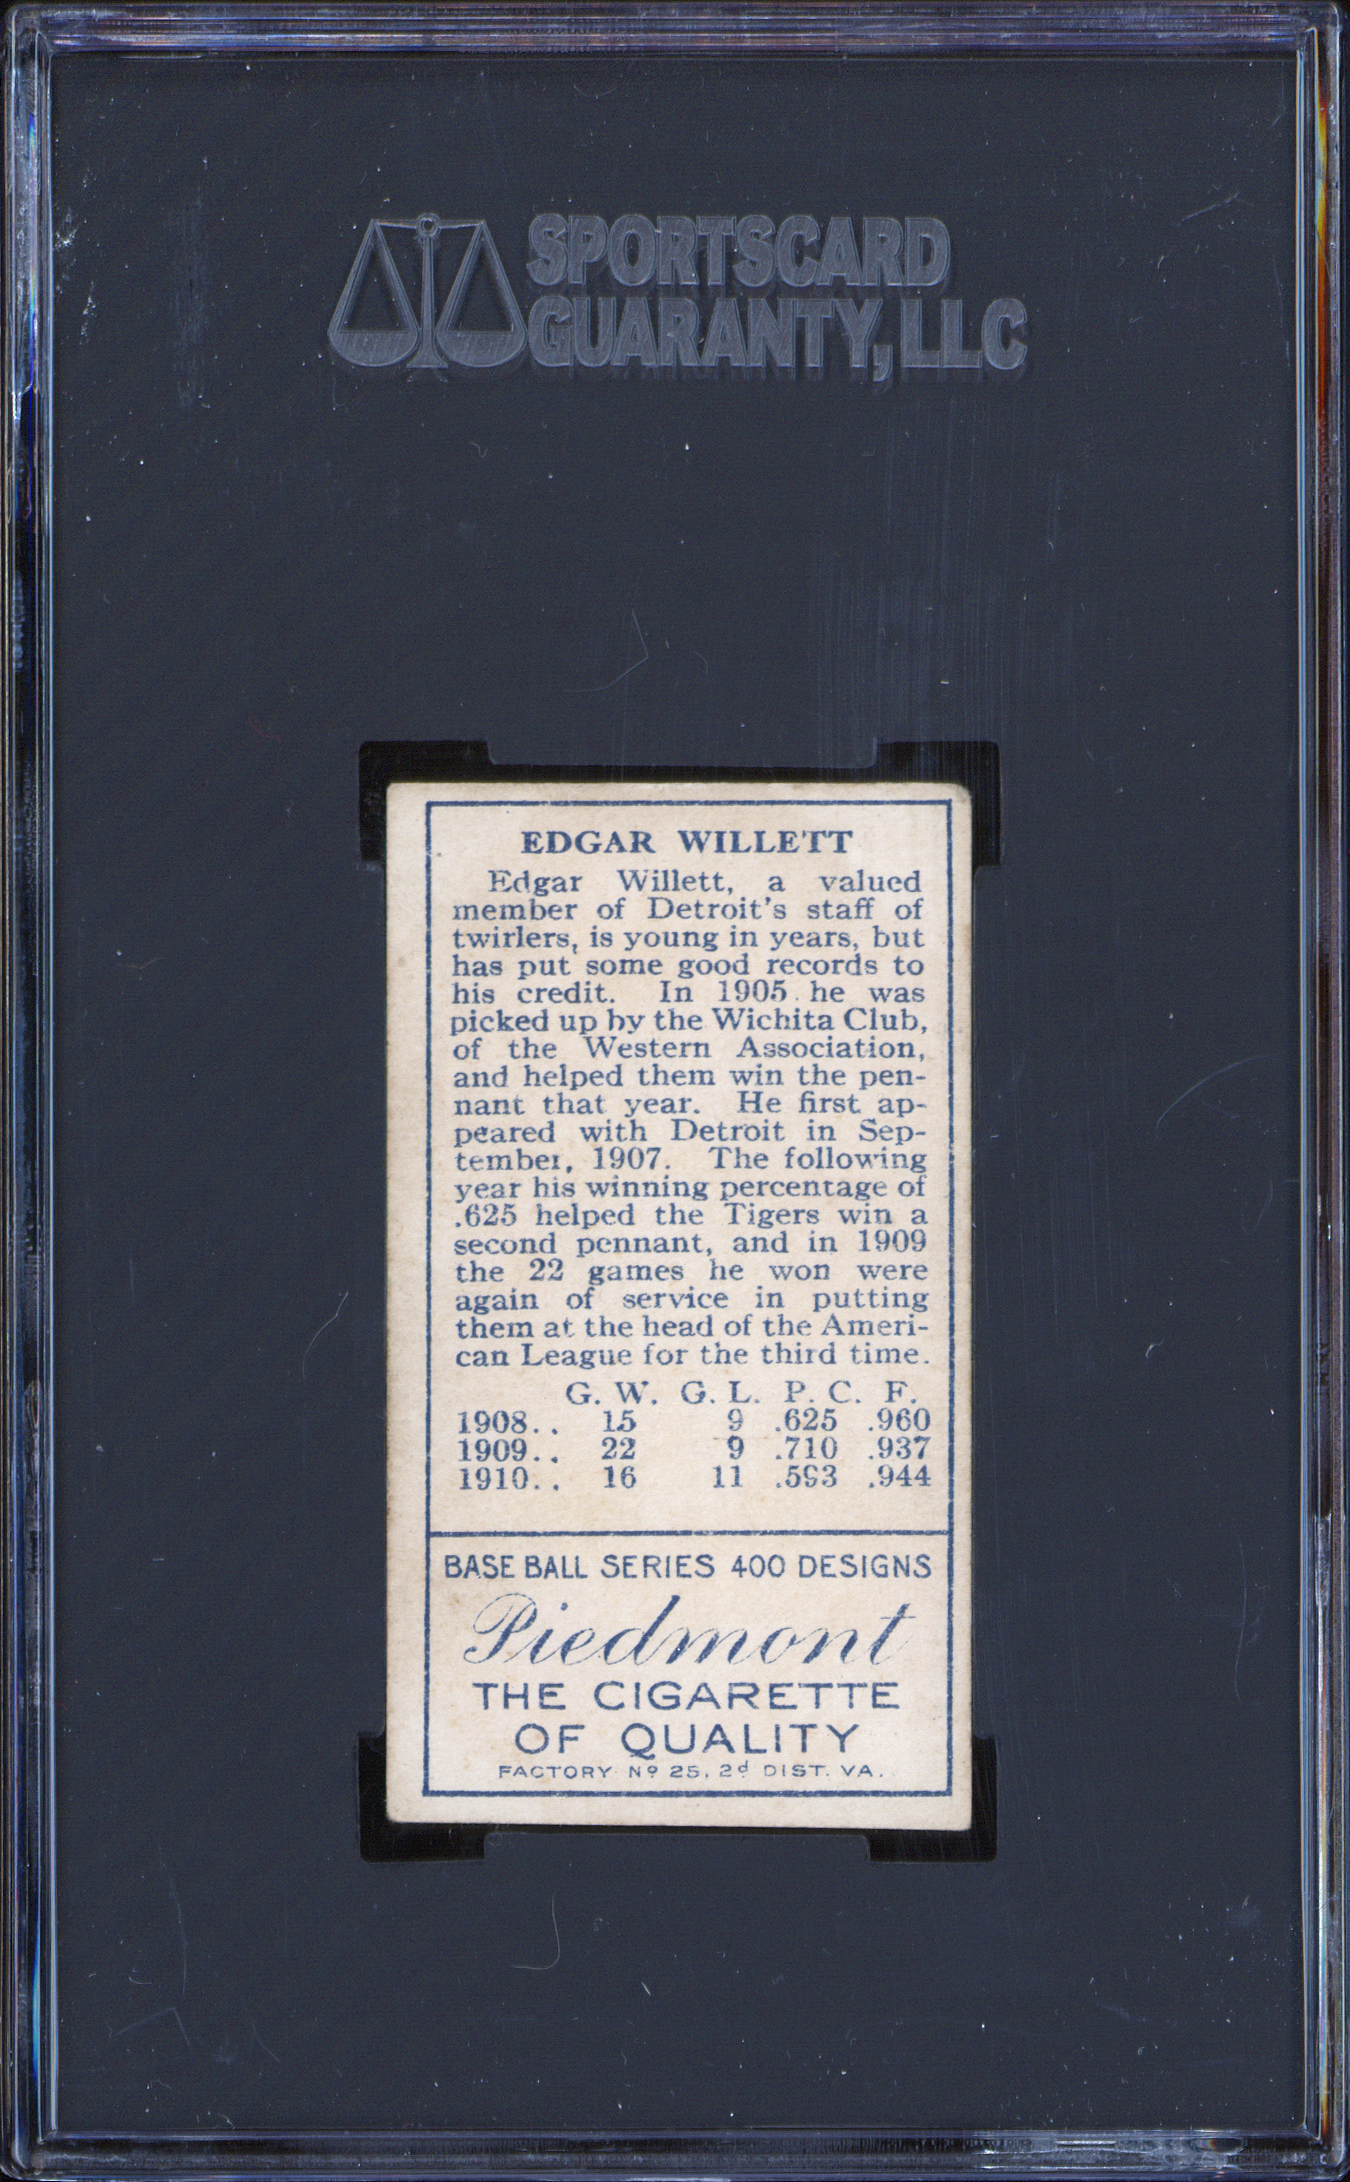 SPORTSCARD
GUARANTY, LLC
EDGAR WILLETT
Edgar Willett, a valued
member of Detroit's staff of
twirlers, is young in years, but
has put some good records to
his credit. In 1905 he was
picked up by the Wichita Club,
of the Western Association,
and helped them win the pen-
nant that year. He first ap-
peared with Detroit in Sep-
tember, 1907. The following
year his winning percentage of
.625 helped the Tigers win a
second pennant, and in 1909
the 22 games he won were
again of service in putting
them at the head of the Ameri-
can League for the third time.
G. W. G. L. P. C. F.
1908.. 15 9 .625 .960
1909.. 22 9 .710 .937
1910.. 16 11 .593 .944
BASE BALL SERIES 400 DESIGNS
Piedmont
THE CIGARETTE
OF QUALITY
FACTORY Nº 25, 2d DIST. VA.